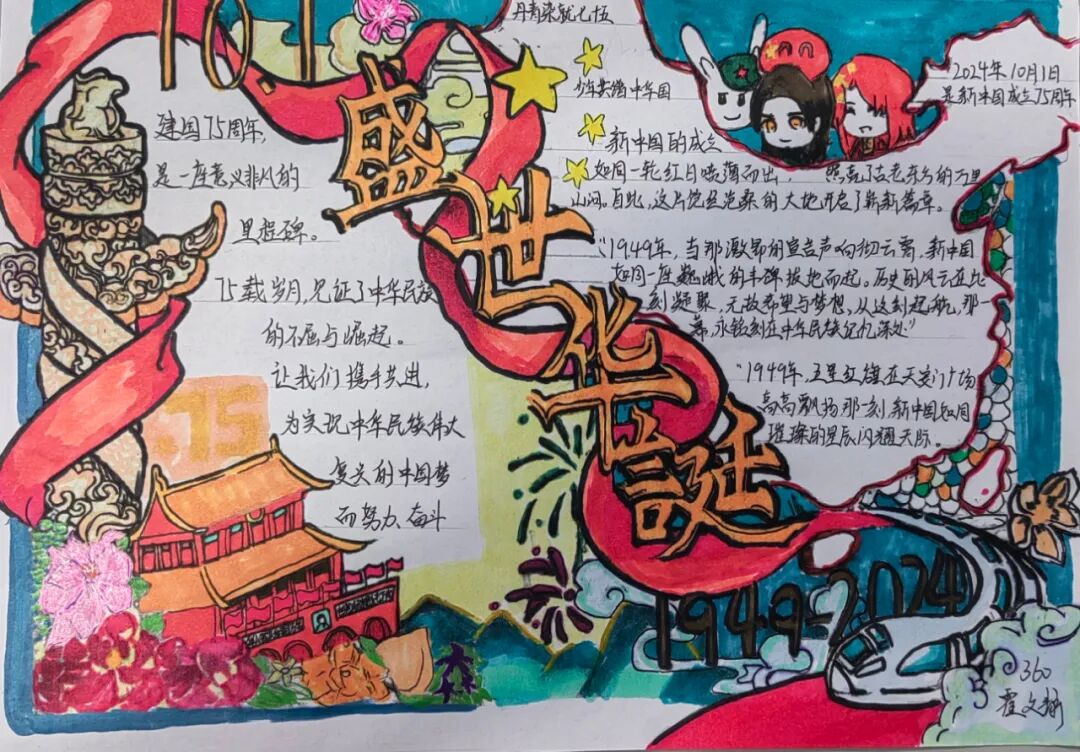 10.1
盛世华誕
建国75周年,
是一座意义非凡的
里程碑。
75载岁月,见证了中华民族
的不屈与崛起。
让我们携手共进,
为实现中华民族伟大
复兴的中国梦
而努力、奋斗
75
丹青染就七五
少年共绘中华国
2024年10月1日
是新中国成立75周年
新中国的成立
如同一轮红日喷薄而出, 照亮了古老东方的万里
山河。自此,这片饱经沧桑的大地开启了崭新篇章。
“1949年,当那激昂的宣告声响彻云霄,新中国
如同一座巍峨的丰碑拔地而起。历史的风云在此
刻凝聚,无数希望与梦想,从这刻起航,那
幕,永铭刻在中华民族记忆深处”
“1949年,五星红旗在天安门广场
高高飘扬那一刻,新中国如同
璀璨的星辰闪耀天际。
1949-2024
360